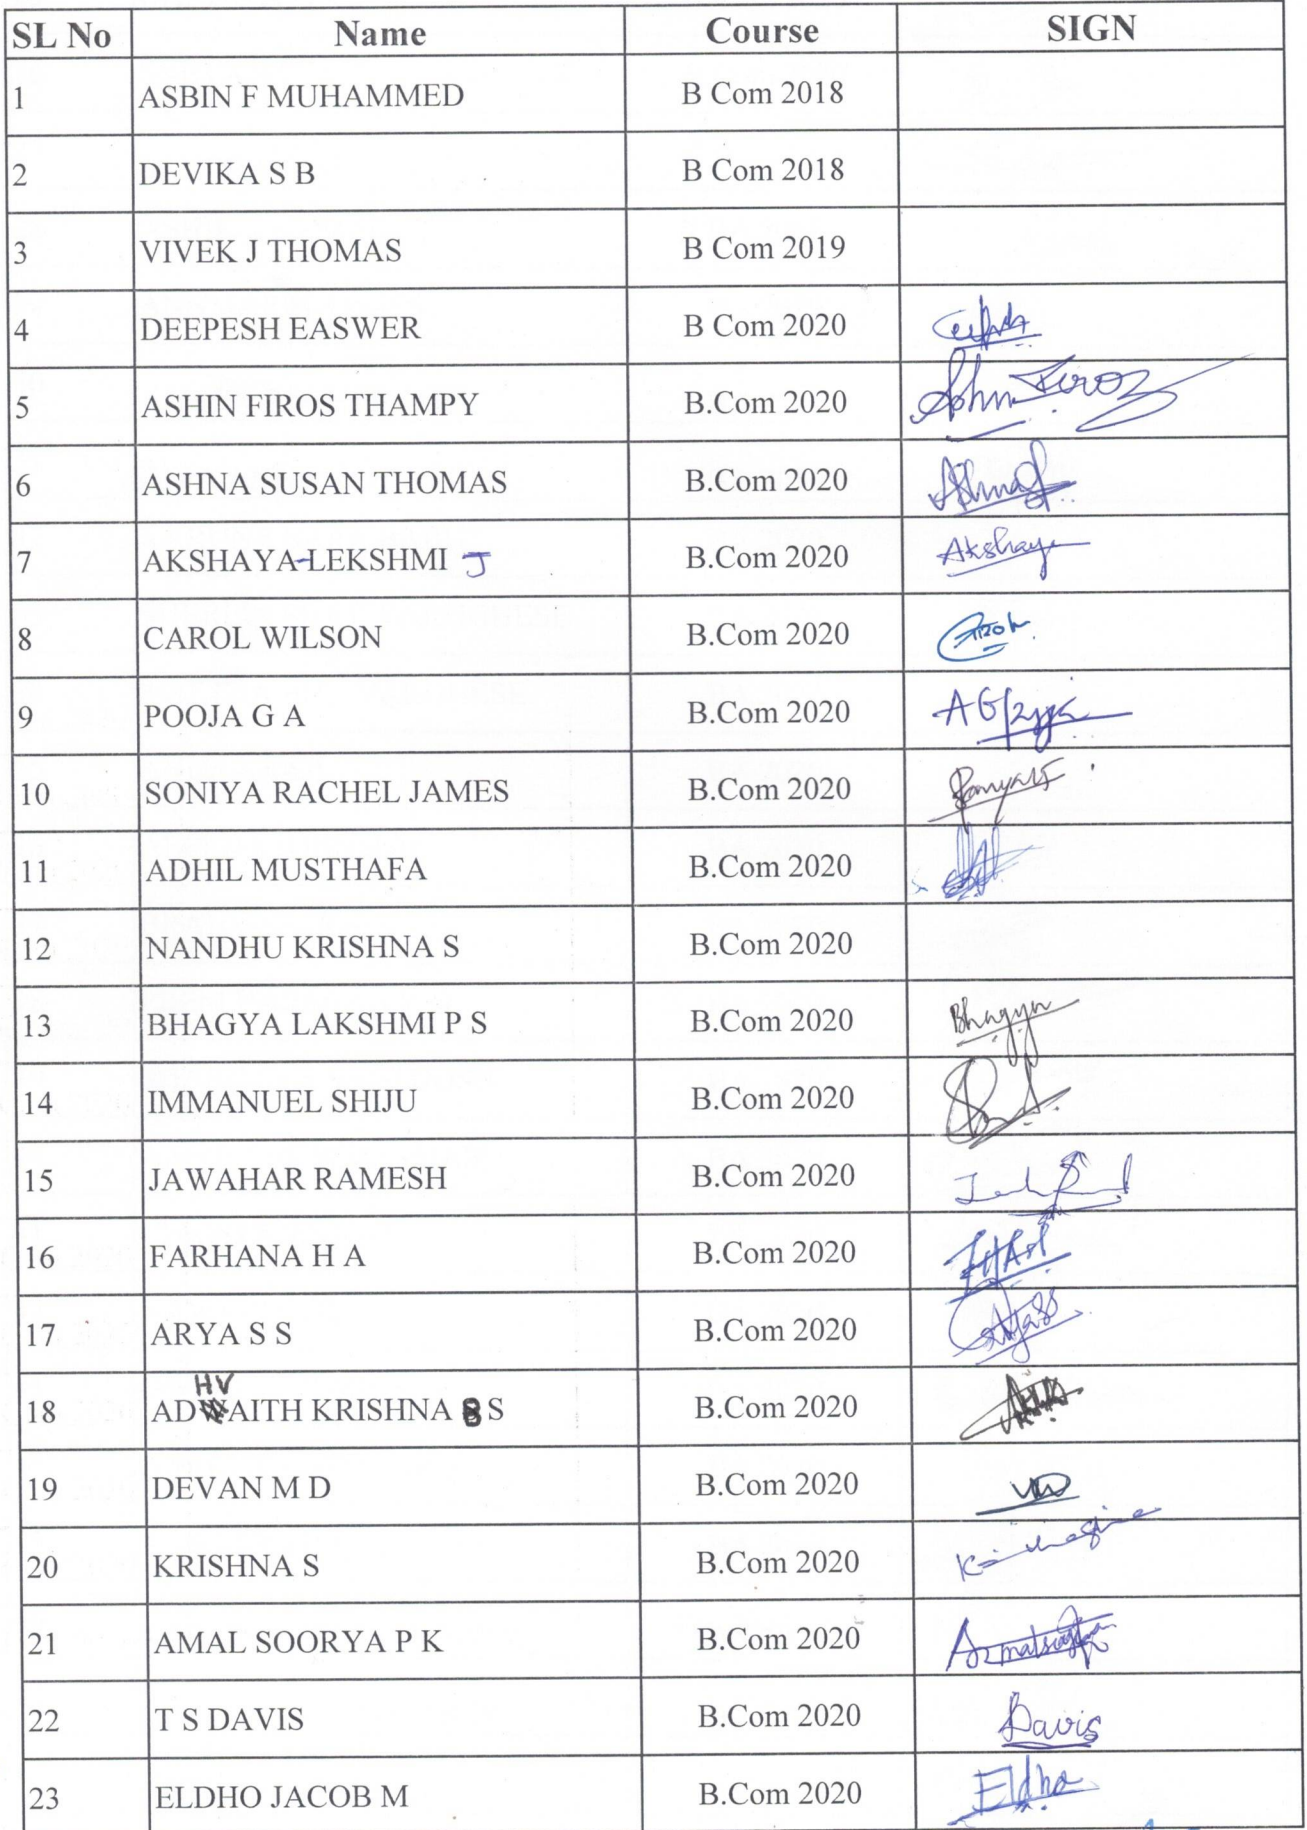 SL No Name Course SIGN
1 ASBIN F MUHAMMED B Com 2018
2 DEVIKA S B B Com 2018
3 VIVEK J THOMAS B Com 2019
4 DEEPESH EASWER B Com 2020
5 ASHIN FIROS THAMPY B.Com 2020 Ashin Firoz
6 ASHNA SUSAN THOMAS B.Com 2020 Ashna
7 AKSHAYA-LEKSHMI J B.Com 2020 Akshaya
8 CAROL WILSON B.Com 2020 Carol
9 POOJA G A B.Com 2020
10 SONIYA RACHEL JAMES B.Com 2020
11 ADHIL MUSTHAFA B.Com 2020
12 NANDHU KRISHNA S B.Com 2020
13 BHAGYA LAKSHMI P S B.Com 2020 Bhagya
14 IMMANUEL SHIJU B.Com 2020
15 JAWAHAR RAMESH B.Com 2020
16 FARHANA H A B.Com 2020
17 ARYA S S B.Com 2020
HV
18 ADWAITH KRISHNA S B.Com 2020
19 DEVAN M D B.Com 2020
20 KRISHNA S B.Com 2020
21 AMAL SOORYA P K B.Com 2020
22 T S DAVIS B.Com 2020 Davis
23 ELDHO JACOB M B.Com 2020 Eldho